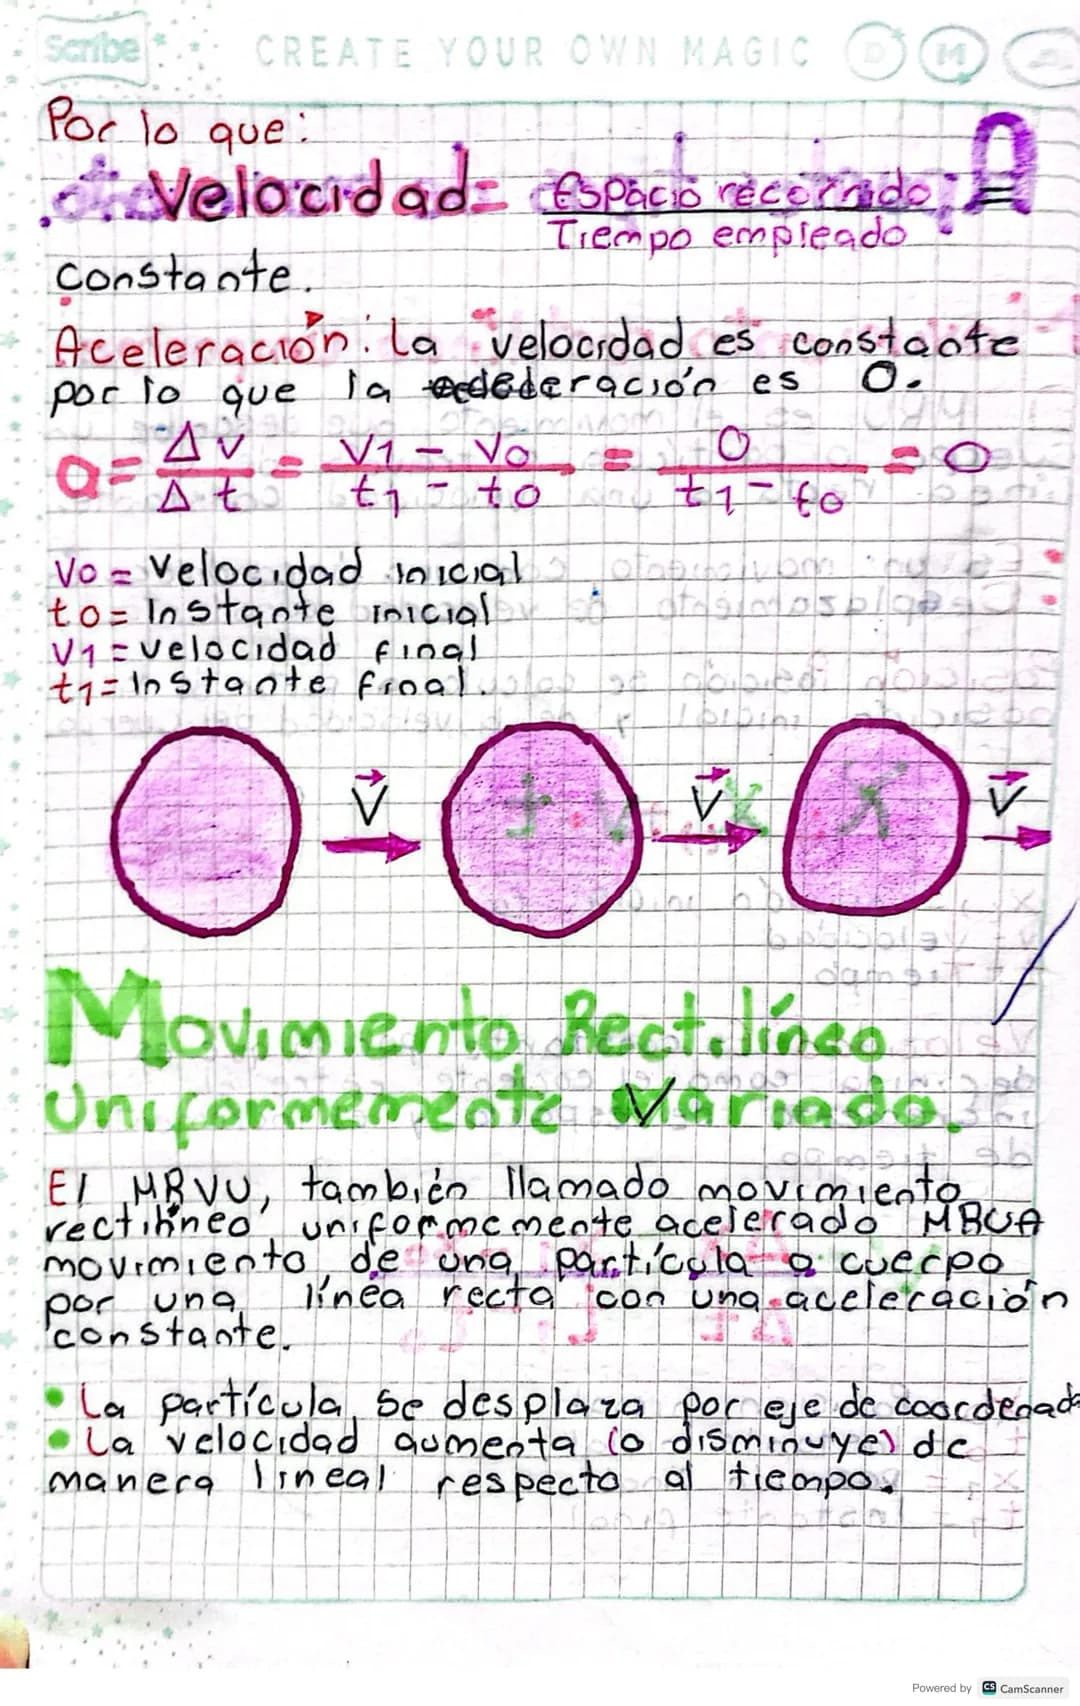 Scribe
CREATE YOUR OWN MAGIC
D M
Por lo que:
Velocidad = Espacio recorrido =
Tiempo empleado
constante.
Aceleración: La velocidad es constante
por lo que la aceleración es 0.
a = Δv / Δt = v1 - v0 / t1 - t0 = 0 / t1 - t0 = 0
v0 = Velocidad inicial
t0 = Instante inicial
v1 = velocidad final
t1 = Instante final.
V V V
Movimiento Rectilíneo
Uniformemente Variado.
El MRVU, también llamado movimiento
rectilíneo uniformemente acelerado MRUA
movimiento de una partícula o cuerpo
por una línea recta con una aceleración
constante.
• La partícula se desplaza por eje de coordenada
• La velocidad aumenta (o disminuye) de
manera lineal respecto al tiempo.
Powered by CS CamScanner